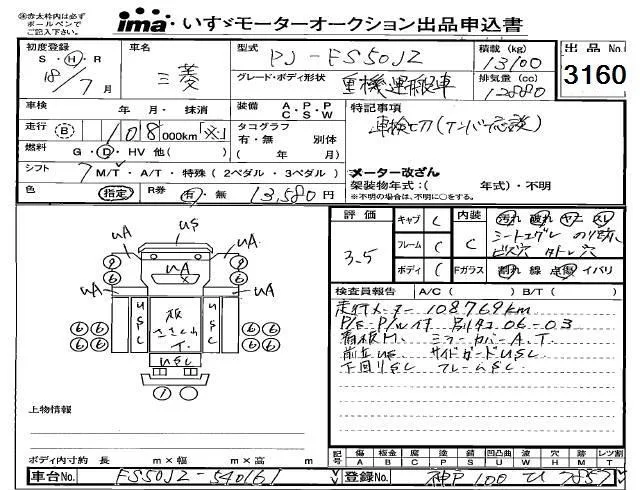 ※赤太枠内は必ず
ボールペンで
ご記入下さい。
ima いすゞモーターオークション出品申込書
初度登録 車名 型式 PJ-FS50JZ 積載 (kg) 13100 出品 No. 3160
S・H・R 18/7月 三菱 グレード・ボディ形状 重機運搬車 排気量 (cc) 12880
車検 年 月・抹消 装備 A.P.P C.S.W 特記事項
走行 B 108 000km「※」 タコグラフ 有・無 別体 車検切(ナンバー応談)
燃料 G・D・HV 他( ) ( 年 月)
シフト 7 M/T・A/T・特殊(2ペダル・3ペダル) メーター改ざん
架装物年式:( 年式)・不明
※不明の場合は、不明に○をする。
色 指定 R券 有・無 13,580円
評価 3.5 キャブ C 内装 C 汚れ 破れ ヤニ スレ
フレーム C シートエグレ のり跡
ボディ C Fガラス ビス穴 タトレ穴
割れ 線 点傷 イバリ
検査員報告 A/C ( ) B/T ( )
走行メーター 108769km
P/G-P/W付 別タコ06-03
看板M. ミラーカバーA.T.
前立US サイドガードUSC
下回りSC フレームSC
US
UA UA
UA
UA UA
USC 板 USC
USC
上物情報
ボディ内寸約 長 m×幅 m×高 m
記号 傷 A 板金 B 腐 C 塗 P 錆 S 凹凸曲 U 波 W 穴 H 跡 M レンズ割 T
車台No. FS50JZ-540161 登録No. 神戸 100 ひ 7857